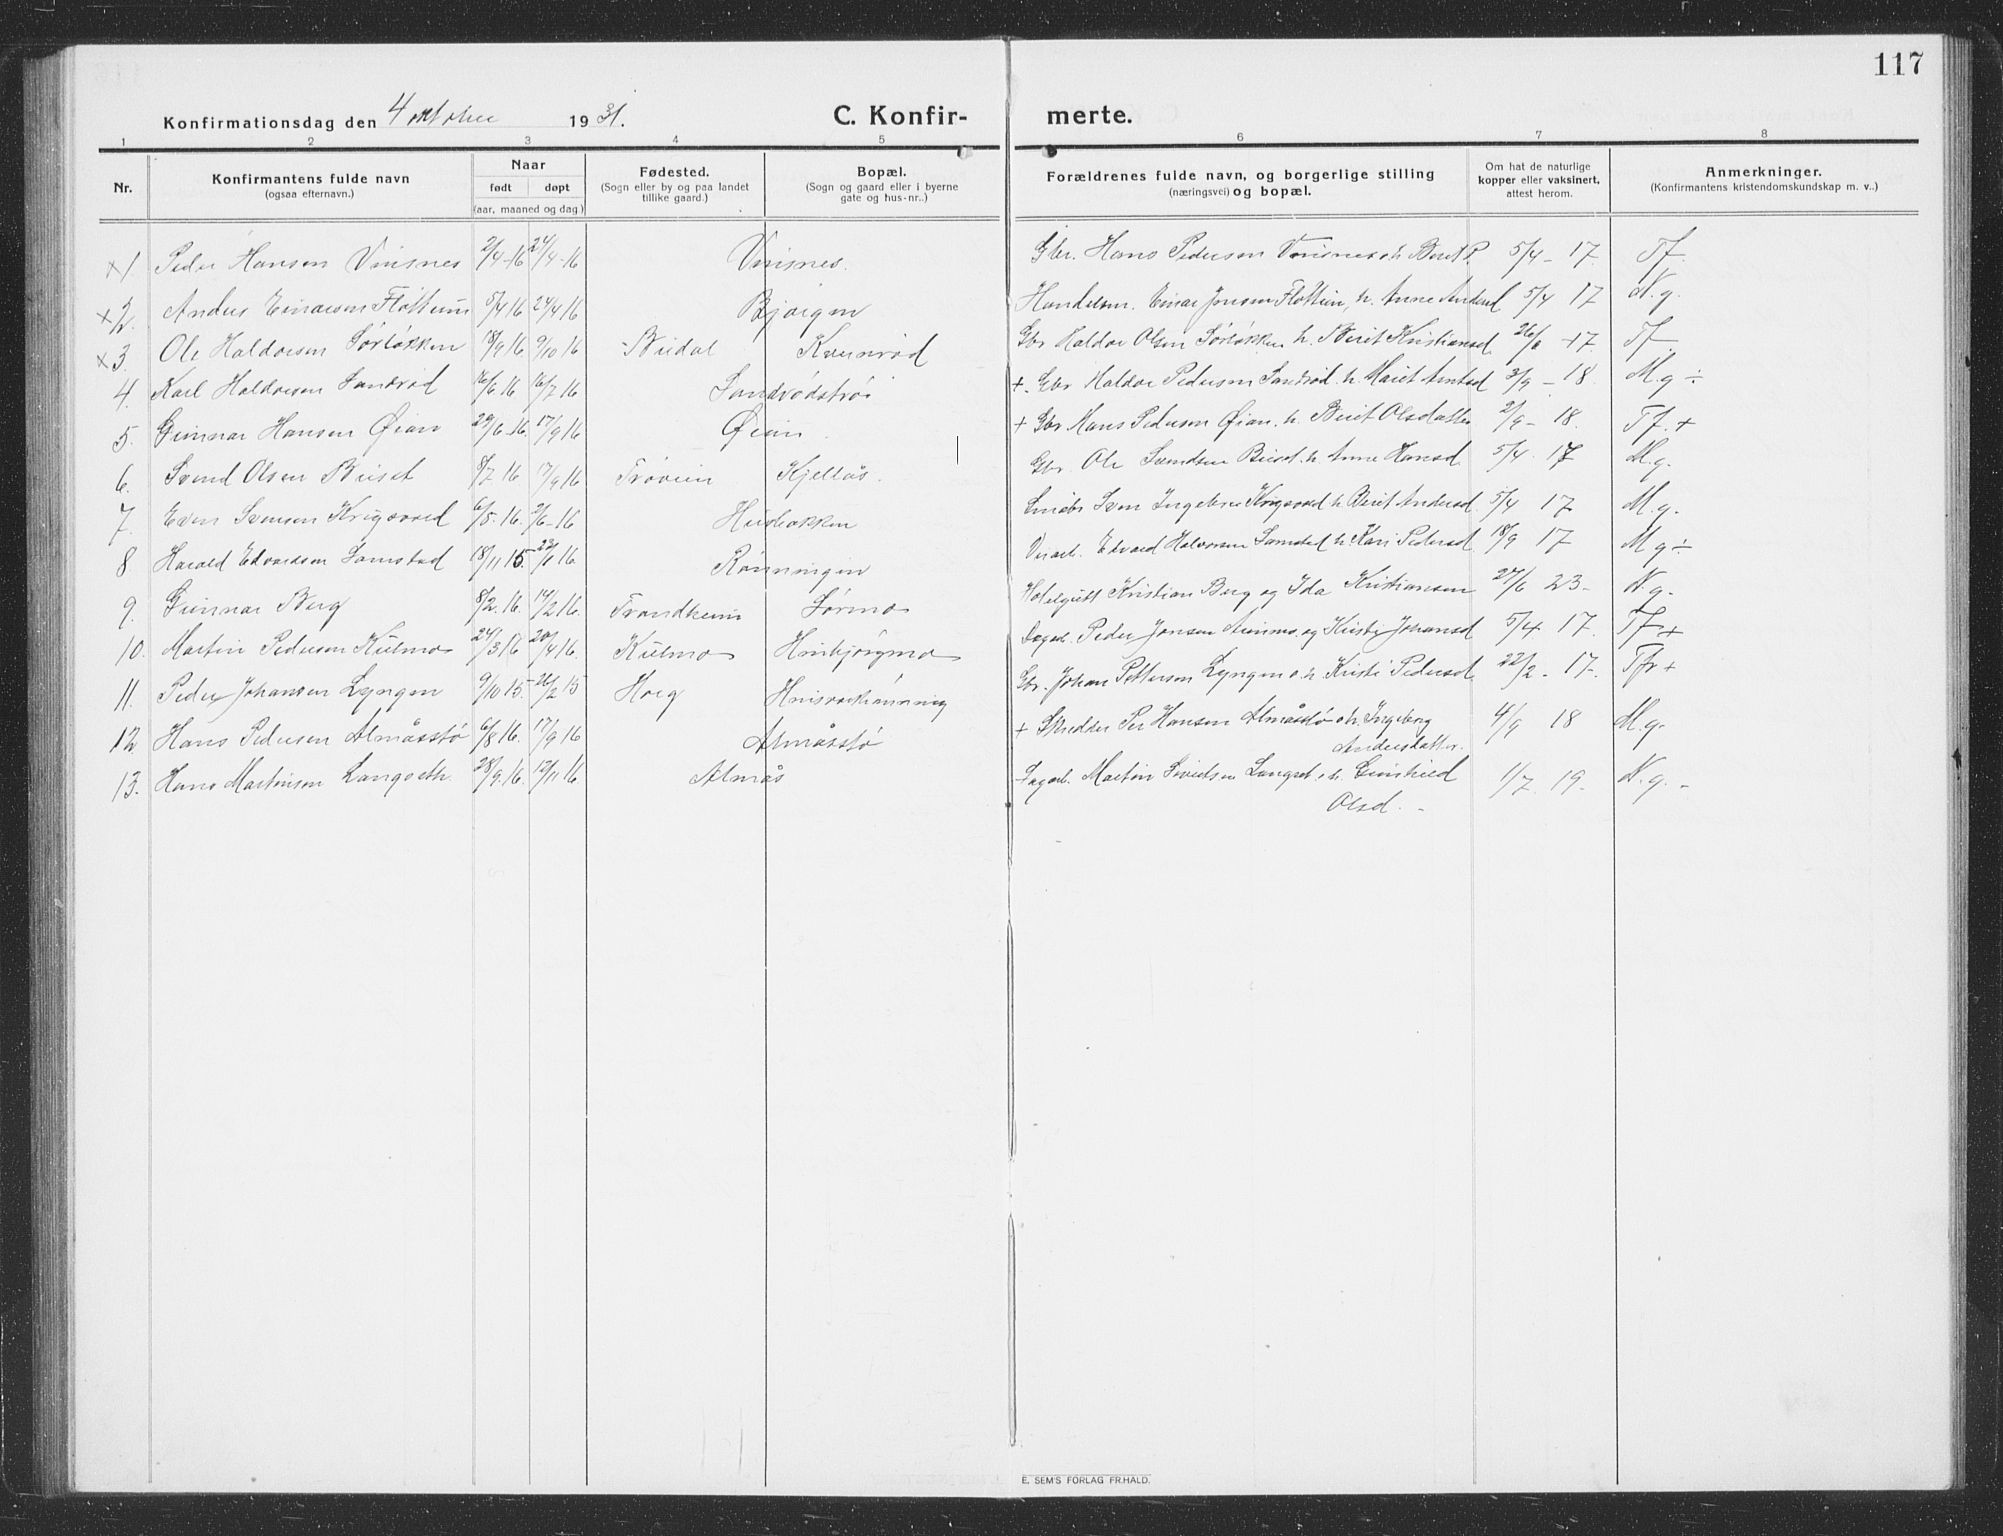 117
Konfirmationsdag den 4 oktober 1931.
C. Konfir- merte.
1 2 3 4 5 6 7 8
Nr.
Konfirmantens fulde navn
(ogsaa efternavn.)
Naar
født døpt
(aar, maaned og dag)
Fødested.
(Sogn eller by og paa landet
tillike gaard.)
Bopæl.
(Sogn og gaard eller i byerne
gate og hus-nr..)
Forældrenes fulde navn, og borgerlige stilling
(næringsvei) og bopæl.
Om hat de naturlige
kopper eller vaksinert,
attest herom.
Anmerkninger.
(Konfirmantens kristendomskundskap m. v..)
x1 Peder Hansen Vinsnes 2/4-16 24/4-16 Vinsnes. Gbr. Hans Pedersen Vinsnes o h Berit P. 5/4-17. Tf.
x2. Anders Einarsen Flottum 5/4 16 24/4 16 Bjørgen Handelsm. Einar Jonsen Flottum, h. Anne Andersd 5/4 17 N.g.
x3. Ole Haldorsen Sørløkken 18/9 16 9/10 16 Budal Kvernrød Gbr Haldor Olsen Sørløkken h. Berit Kristiansd. 17. Tf.
4. Karl Haldorsen Sandrød 16/6 16 16/7 16 Sandrødstrøi + Gbr Haldor Pedersen Sandrød h. Marit Arntsd 3/9 - 18. M.g ÷
5. Gunnar Hansen Øian 29/6 16. 17/9 16 Øian. + Gbr Hans Pedersen Øian. h. Berit Olsdatter 2/9 - 18. Tf. +
6. Svend Olsen Buset 8/7 16 17/9 16 Frøvien Kjellås. Gbr. Ole Svendsen Buset. h. Anne Hansd. 5/4. 17 M.g.
7. Even Svensen Krigsvoll 6/5. 16. 2/6-16 Husbakken Småbr Sven Ingebr. Krigsvold h Berit Andersd. 5/4 17 M.g.
8 Harald Edvardsen Samstad 18/11 15. 23/1 16 Rønningen Edvard Halvorsen Samstad h. Kari Pedersd. 18/9 17 M g ÷
9. Gunnar Berg 8/2. 16. 14/2 16. Trondheim Sørmo Kristian Berg og Ida Kristiansen 27/6 23- N.g.
10. Martin Pedersen Kulmo 24/3 16 20/4 16. Kulmo Hinbjørgmo Dagarb. Peder Jonsen og Kirsti Johansd 5/4. 17. Tf +
11. Peder Johansen Lyngen 9/10 15- 26/2 15 Horg Gbr. Johan Pettersen Lyngen o h. Kristi Pedersd. 22/2 - 17. Tfr +
12. Hans Pedersen Almåsstø 6/8 16. 17/9 16 Almåsstø + Skredder Per Hansen Almåsstø o h. Ingeborg 4/9 18 M.g.
Andersdatter.
13. Hans Martinsen Langseth. 28/9. 16. 12/11 16 Almås Dagarb. Martin Sivertsen Langset, h. Gunhild 1/7. 19. N.g. -
Olsd. -
E. SEM'S FORLAG FR.HALD.